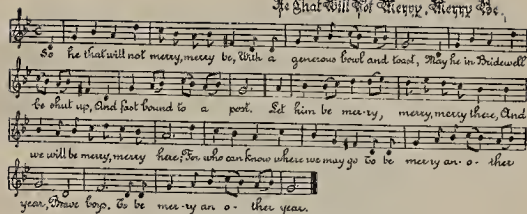 He that Will Not Merry, Merry Be.
So he that will not merry, merry be, With a generous bowl and toast, May he in Bridewell
be shut up, And fast bound to a post. Let him be mer-ry, merry, merry there, And
we will be merry, merry here; For who can know where we may go To be mer-ry an-o-ther
year, Brave boys, To be mer-ry an o-ther year.